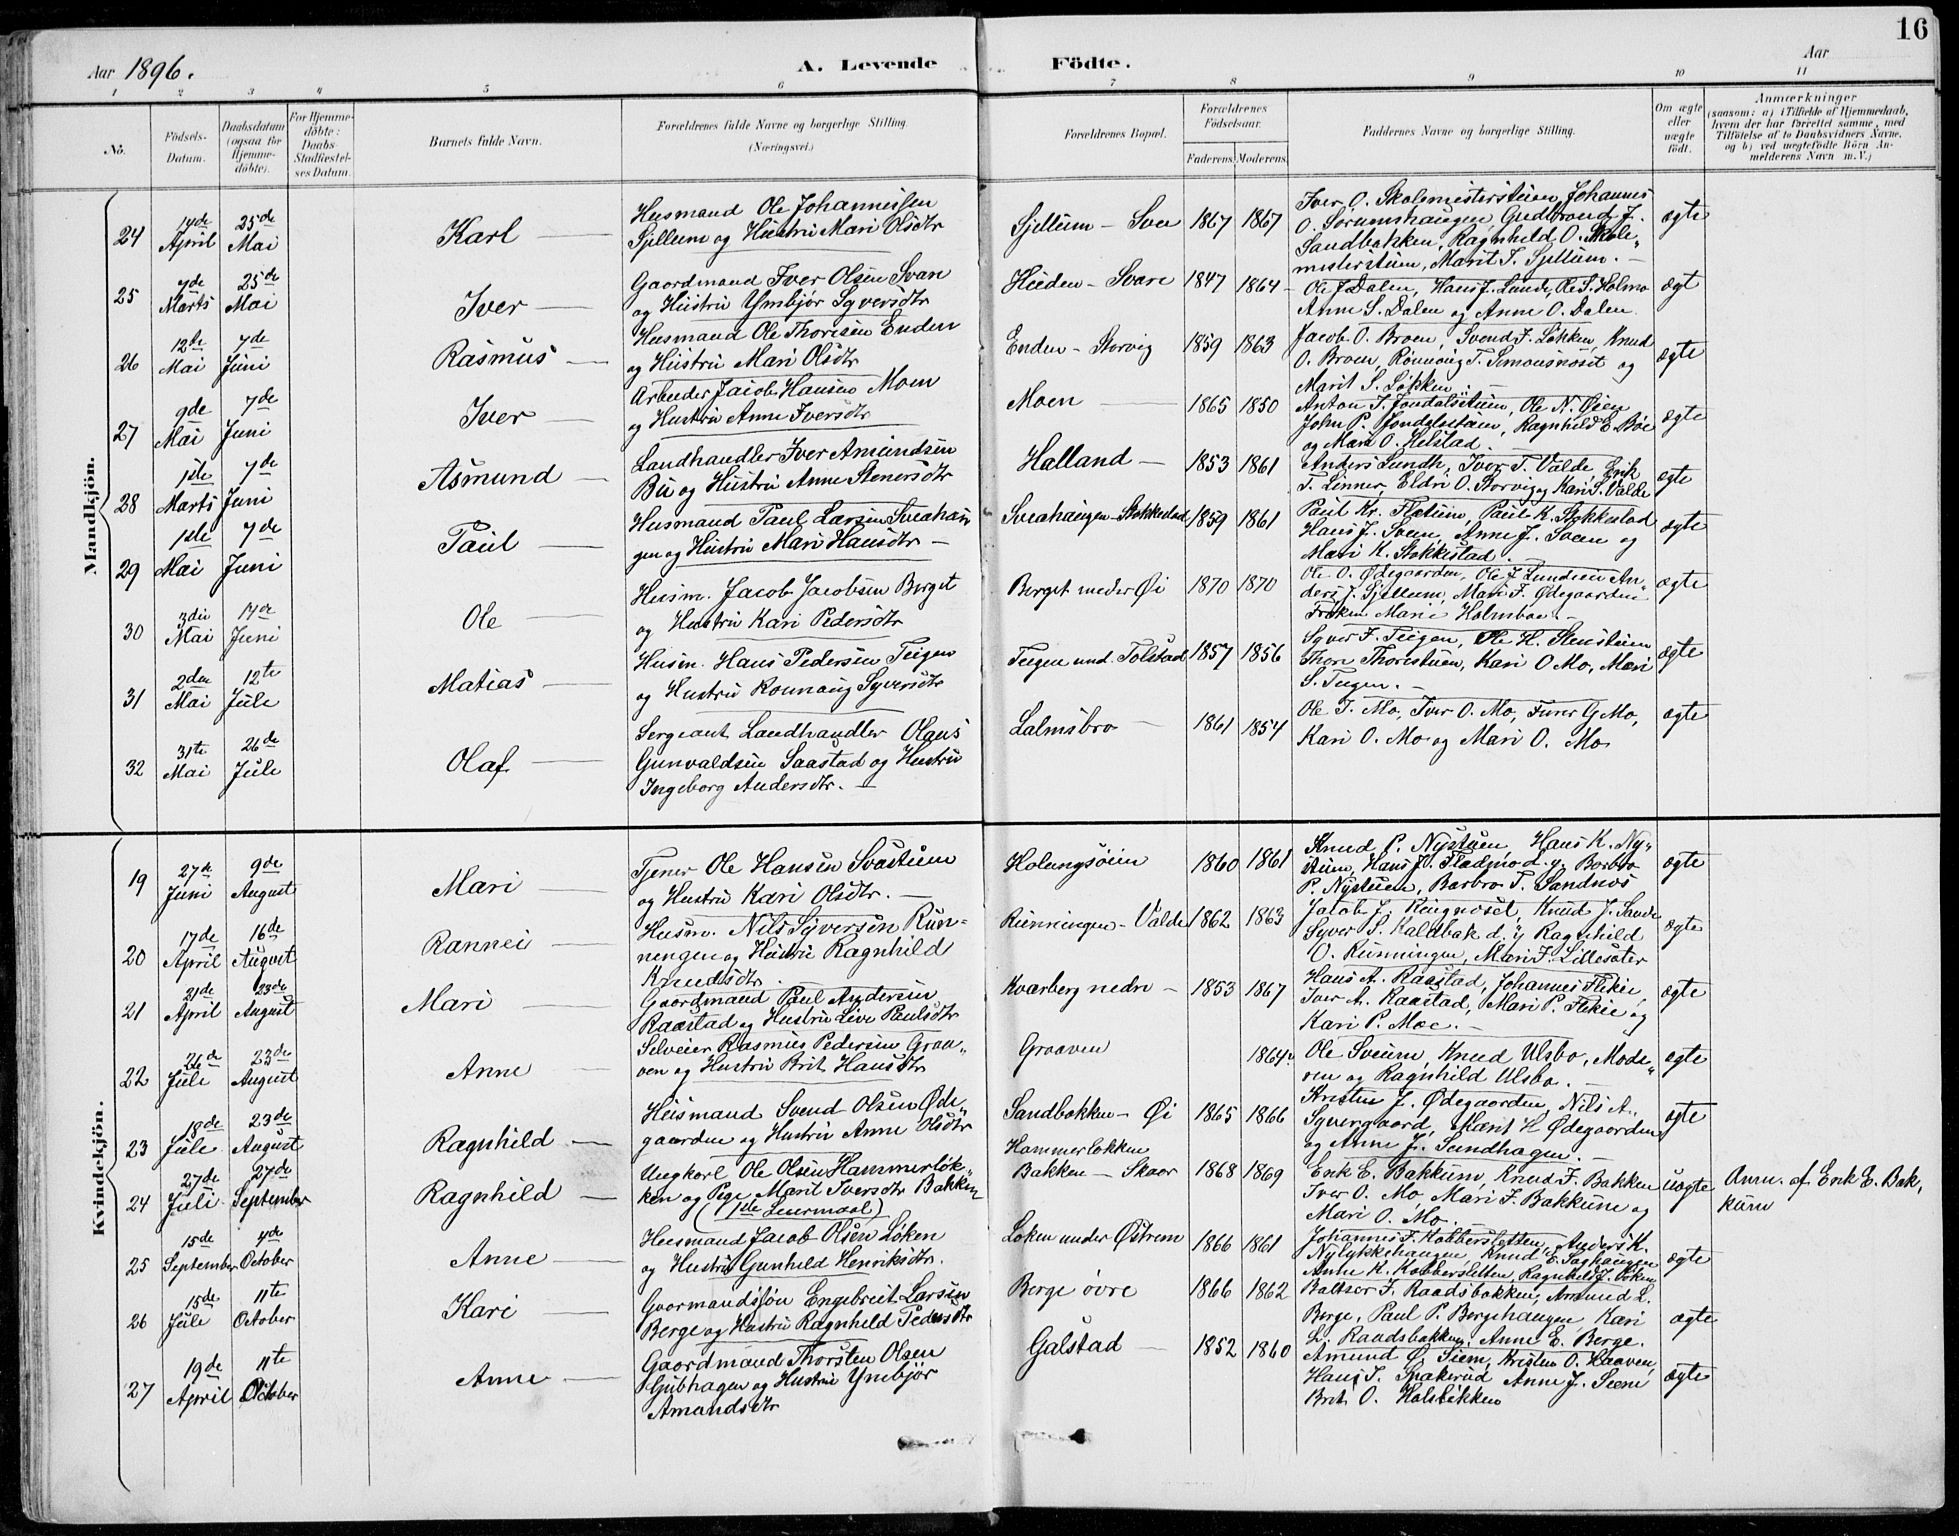 16
Aar 1896.
A. Levende Födte.
Aar
1 2 3 4 5 6 7 8 9 10 11
No.
Födsels-Datum.
Daabsdatum (ogsaa for Hjemme-döbte).
For Hjemme-döbte: Daabs-Stadfæstel-ses Datum.
Barnets fulde Navn.
Forældrenes fulde Navne og borgerlige Stilling. (Næringsvei.)
Forældrenes Bopæl.
Forældrenes Födselsaar.
Faderens. Moderens.
Faddernes Navne og borgerlige Stilling.
Om ægte eller uægte födt.
Anmærkninger
(saasom: a) i Tilfælde af Hjemmedaab, hvem der har forrettet samme, med Tilföielse af to Daabsvidners Navne, og b) ved uægtefödte Börn Anmelderens Navn m. V.)
Mandkjön.
24 14de April 25de Mai Karl
Husmand Ole Johannessen
Sjellum og Hustru Mari Olsdtr
Sjellum - Sve 1867 1867
Iver O. Skolemesterstuen, Johannes
O. Sorumshaugen, Gudbrand J.
Sandbakken, Ragnhild O. Skole-
mesterstuen, Marit J. Sjellum.
ægte
25 7de Marts 25de Mai Iver
Gaardmand Iver Olsen Svare
og Hustru Ymbjør Syversdtr
Heiden - Svare 1847 1864
Ole J. Dalen, Hans J. Lunde, Ole S. Holmo
Anne S. Dalen og Anne O. Dalen
ægt
26 12te Mai 7de Juni Rasmus
Husmand Ole Thoresen Enden
og Hustru Mari Olsdtr
Enden - Storvig 1859 1863
Jacob O. Broen, Svend J. Løkken, Knud
O. Broen, Rønnaug T. Simonsnøset og
Marit S. Løkken
ægte
27 9de Mai 7de Juni Iver
Arbeider Jacob Hansen Moen
og Hustru Anne Iversdtr
Moen 1865 1850
Anton J. Jondalsstuen, Ole N. Øien
John P. Jondalsstuen, Ragnhild E. Bøe
og Mari O. Helstad.
ægte
28 1ste Marts 7de Juni Asmund
Landhandler Iver Amundsen
Bu og Hustru Anne Stenersdtr
Halland 1853 1861
Anders Lundh, Iver T. Valde, Erik
T. Linner, Eldri O. Storvig og Kari S. Valde
ægte
29 1ste Mai 7de Juni Paul
Husmand Paul Larsen Sveahau
gen og Hustru Mari Hansdtr
Sveahaugen - Stokkestad 1859 1861
Paul Kr. Flatum, Paul K. Stokkestad
Hans J. Sveen, Anne J. Sveen og
Mari K. Stokkestad.
ægte
30 3die Mai 14de Juni Ole
Husm. Jacob Jacobsen Berget
og Hustru Kari Pedersdtr
Berget under Øi 1870 1870
Ole O. Ødegaarden, Ole J. Lundeien An-
ders J. Sjellum, Mari F. Ødegaarden
Frøken Marie Holmboe.
ægte
31 2den Mai 12te Jule Matias
Husm. Hans Pedersen Teigen
og Hustru Rønnaug Syversdtr
Teigen und. Tolstad 1857 1856
Syver F. Teigen, Ole H. Stenstuen
Thore Thorestuen, Kari O. Mo, Mari
S. Teigen.
ægte
32 31te Mai 26de Jule Olaf
Sergeant Landhandler Olaus
Gunvaldsen Saastad og Hustru
Ingeborg Andersdtr.
Lalmsbro 1861 1854
Ole T. Mo, Iver O. Mo, Furer G. Mo,
Kari O. Mo og Mari O. Mo
ægte
Kvindekjön.
19 27de Juni 9de August Mari
Tjener Ole Hansen Svastuen
og Hustru Kari Olsdtr.
Holungsøien 1860 1861
Knud P. Nystuen, Hans K. Ny-
stuen, Hans J. Fladmo d. y. Barbro
P. Nystuen, Barbro T. Sandnes
ægte
20 17de April 16de August Rannei
Husm. Nils Syversen Run-
ningen og Hustru Ragnhild
Knudsdtr.
Runningen - Valde 1862 1863
Jakob J. Ringnøset, Knud J. Sande
Syver S. Kaldbak d. y Ragnhild
O. Runningen, Mari F. Lillesæter
ægte
21 21de April 23de August Mari
Gaardmand Paul Andersen
Raastad og Hustru Live Paulsdtr
Kvarberg nedre 1853 1867
Hans A. Raastad, Johannes Flekie,
Iver A. Raastad, Mari P. Flekie og
Kari P. Moe.
ægte
22 26de Jule 23de August Anne
Selveier Rasmus Pedersen Graa-
ven og Hustru Brit Hansdtr
Graaven 1864
Ole Sveum, Knud Ulsbo, Mode-
ren og Ragnhild Ulsbo.
ægte
23 18de Jule 23de August Ragnhild
Husmand Svend Olsen Øde-
gaarden og Hustru Anne Olsdtr
Sandbakken - Øi 1865 1866
Kristen J. Ødegaarden, Nils A.
Syvergaard, Marit H. Ødegaarden
og Anne J. Sundhagen.
ægte
24 27de Juli 27de September Ragnhild
Ungkarl Ole Olsen Hammerløk-
ken og Pige Marit Iversdtr Bakken
(1ste Leiermaal)
Hammerløkken
Bakken - Skaar 1868 1869
Erik E. Bakkum, Knud F. Bakken
Iver O. Mo Mari F. Bakkene og
Mari O. Mo.
uægte
Anm. af Erik E. Bak-
kum
25 15de September 4de October Anne
Husmand Jacob Olsen Løken
og Hustru Gunhild Henriksdtr.
Løken under Østrem 1866 1861
Johannes F. Kobbersletten, Anders K.
Nylykkehaugen, Knud E. Saghaugen
Anne K. Kobbersletten, Ragnhild J. Løken
ægte
26 15de Jule 11te October Kari
Gaarmandssøn Engebret Larsen
Berge og Hustru Ragnhild Pedersdtr
Berge øvre 1866 1862
Baltser F. Raadsbakken, Amund L.
Berge, Paul P. Bergehaugen Kari
L. Raadsbakken, Anne E. Berge.
ægte
27 19de April 11te October Anne
Gaardmand Thorsten Olsen
Gubhagen og Hustru Ymbjør
Amundsdtr
Galstad 1852 1860
Amund Ø. Siem, Kristen O. Haaven,
Hans T. Spakerud Anne J. Siem
Brit O. Holsløkken
ægte